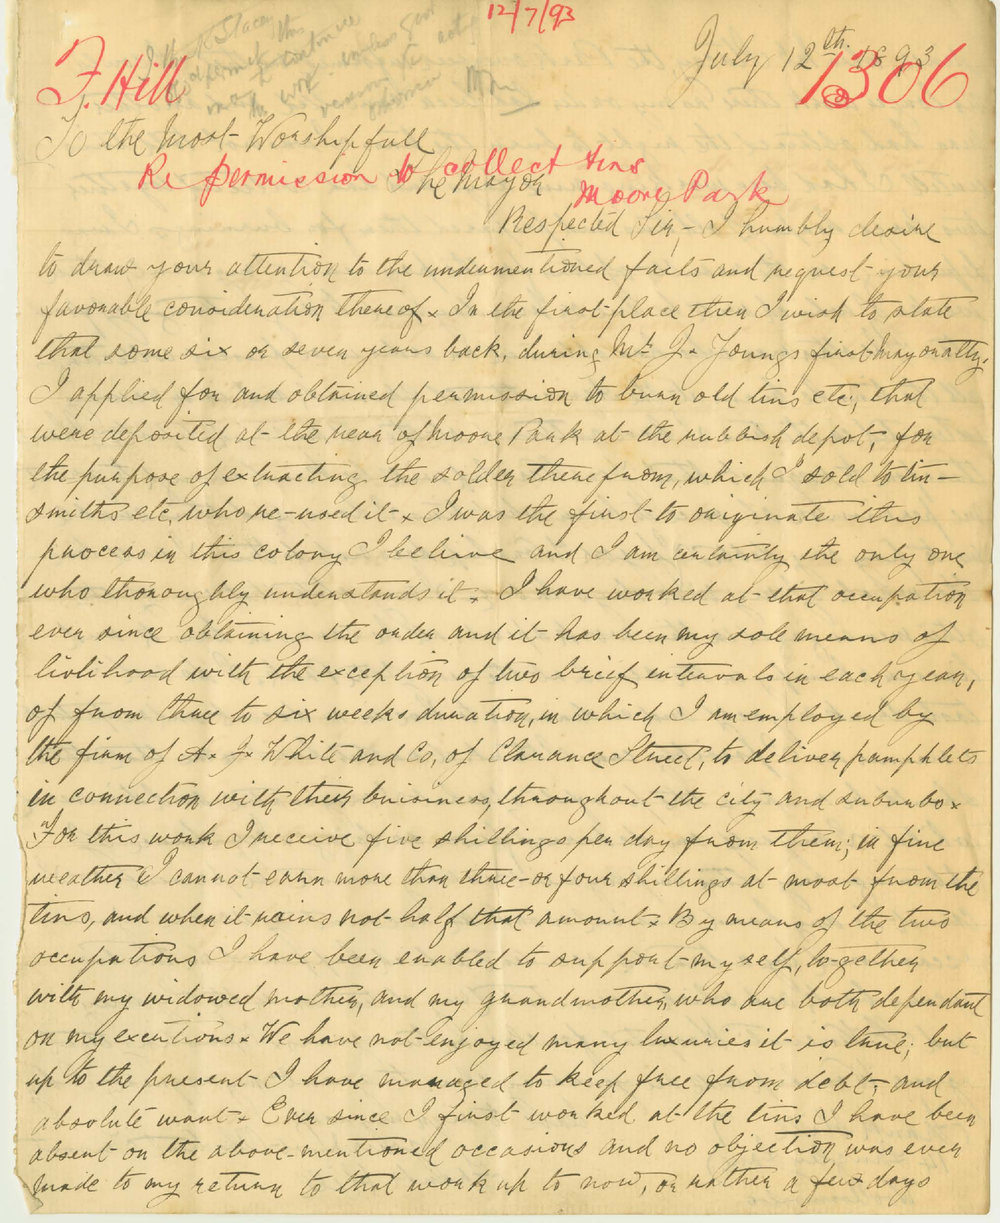 12/7/93
July 12th. 1893
F. Hill
1306
To the Most Worshipfull
The Mayor
Re permission to collect tins
Moore Park
Respected Sir, - I humbly desire
to draw your attention to the undermentioned facts and request your
favorable consideration thereof x In the first place then I wish to state
that some six or seven years back, during Mr. J. Youngs first Mayoralty,
I applied for and obtained permission to burn old tins etc; that
were deposited at the rear of Moore Park at the rubbish depot, for
the purpose of extracting the solder therefrom, which I sold to tin-
smiths etc, who re-used it x I was the first to originate this
process in this colony I believe and I am certainly the only one
who thoroughly understands it x I have worked at that occupation
ever since obtaining the order and it has been my sole means of
livlihood with the exception of two brief intervals in each year,
of from three to six weeks duration, in which I am employed by
the firm of A. J. White and Co, of Clarance Street, to deliver pamphlets
in connection with their buisiness, throughout the city and suburbs x
For this work I receive five shillings per day from them; in fine
weather I cannot earn more than three or four shillings at most from the
tins, and when it rains not half that amount x By means of the two
occupations I have been enabled to support myself, to-gether
with my widowed mother, and my grandmother, who are both dependant
on my exertions x We have not enjoyed many luxuries it is true; but
up to the present I have managed to keep free from debt, and
absolute want x Ever since I first worked at the tins I have been
absent on the above-mentioned occasions and no objection was ever
made to my return to that work up to now, or rather a few days